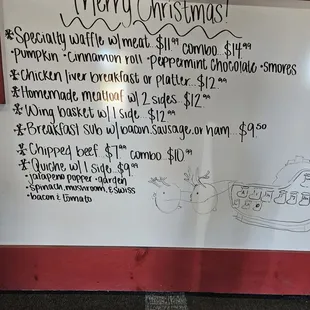 Merry Christmas!
Specialty waffle w/ meat...$11.99 combo...$14.99
•Pumpkin •Cinnamon roll •Peppermint Chocolate •Smores
Chicken liver breakfast or platter...$12.99
Homemade meatloaf w/ 2 sides...$12.99
Wing basket w/ 1 side...$12.99
Breakfast sub w/ bacon, sausage, or ham...$9.50
Chipped beef $7.99 combo...$10.99
Quiche w/ 1 side...$9.99
•jalapeno popper •garden
•spinach, mushroom, & swiss
•bacon & tomato